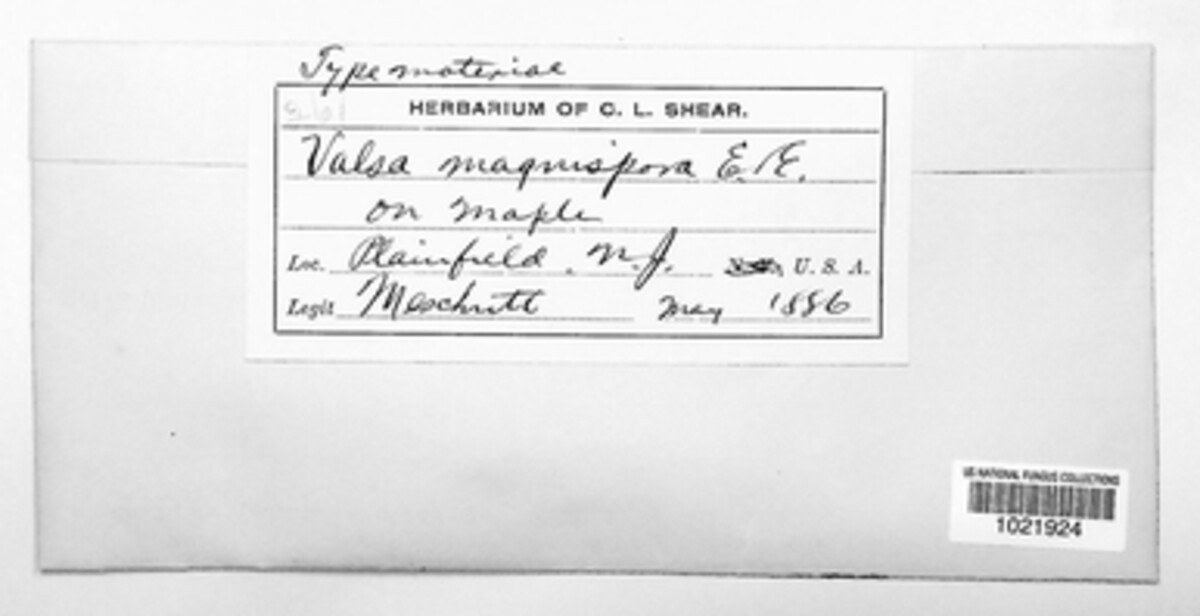 Type material
HERBARIUM OF C. L. SHEAR.
Valsa magnispora E. & E.
on maple
Loc. Plainfield, N. J. U. S. A.
Legit Meschutt May 1886
US NATIONAL FUNGUS COLLECTIONS
1021924